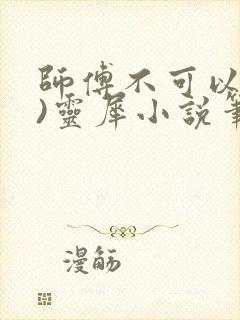 師傅不可以
)靈犀小說筆
漫觞